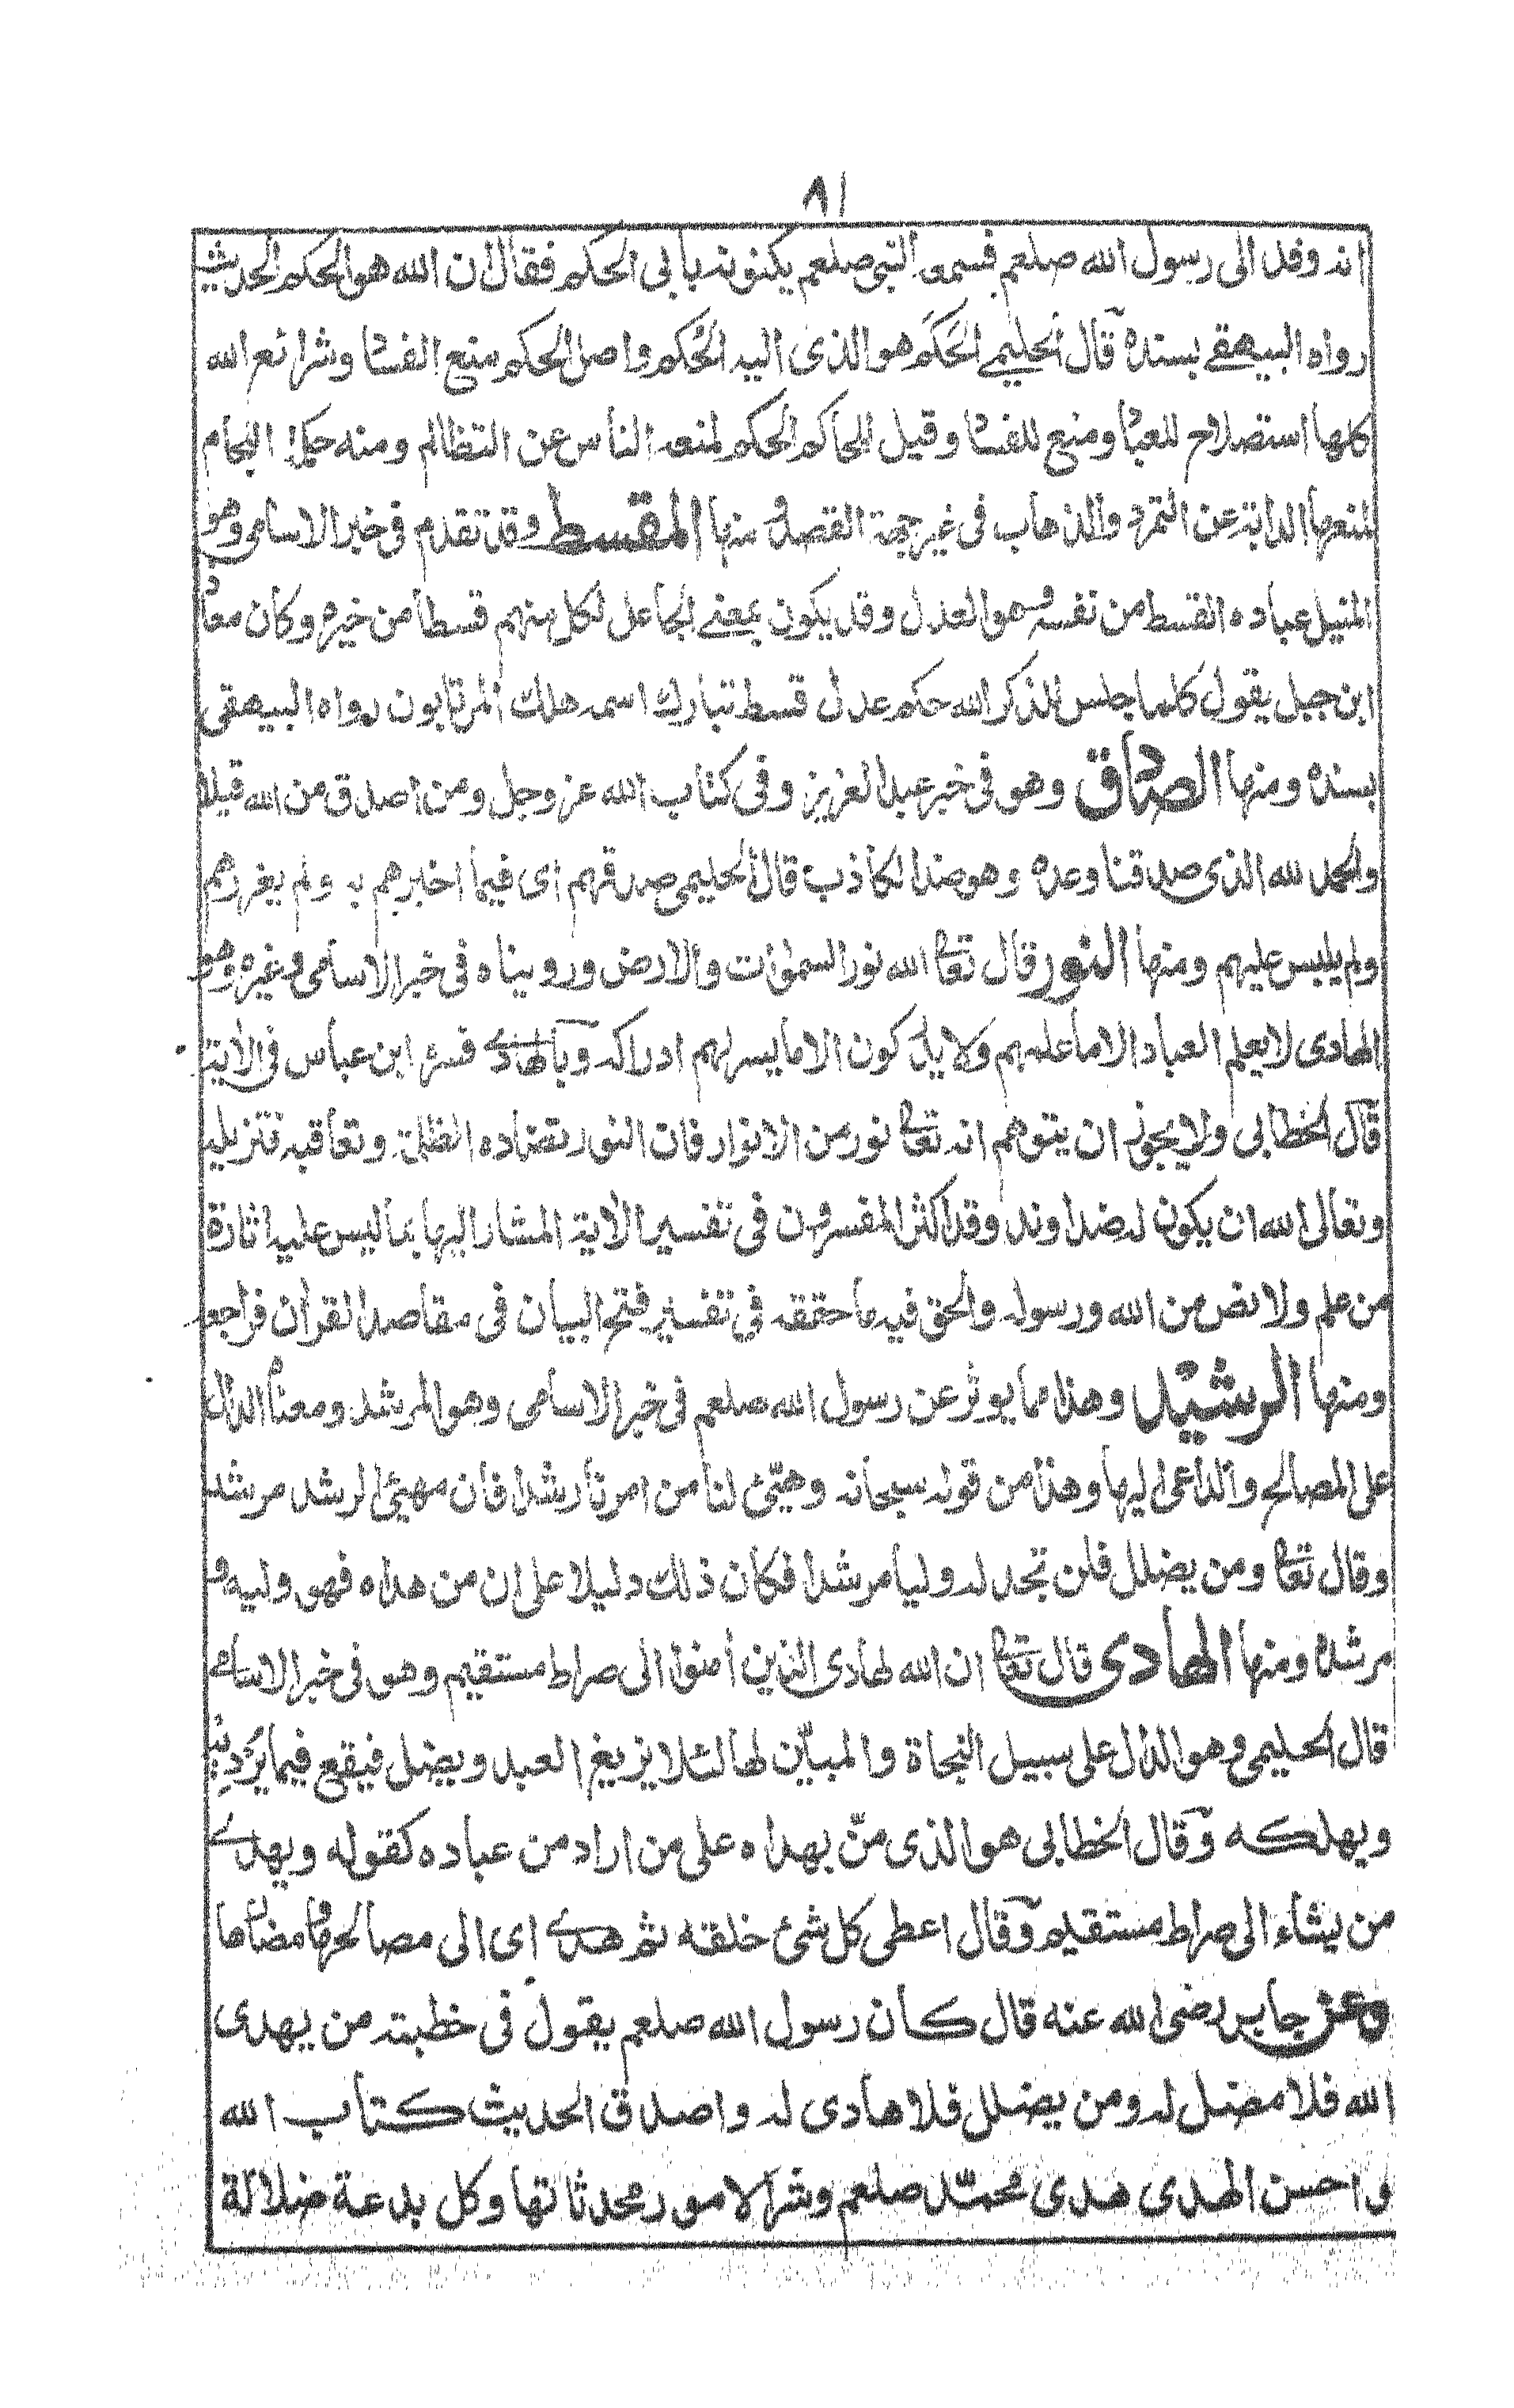 ٨١
انه وفد الى رسول الله صلعم فسمعه النبى صلعم يكنونه بابى الحكم فقال ان الله هو الحكم الحديث
رواه البيهقے بسنده قال الحليمے الحَكَم هو الذى اليه الحُكم واصل الحكم منع الفساد وشرائع الله
كلها استصلاح للعباد ومنع للفساد وقيل للحاكم الحكم لمنعه الناس عن التظالم ومنه حكمة اللجام
لمنعها الدابة عن التمرد والذهاب فى غير جهة القصد ومنها المقسط وقد تقدم فى خبر الاسامى وهو
المنيل عباده القسط من نفسه وهو العدل وقد يكون بمعنے الجاعل لكل منهم قسطا من خيره وكان معاذ
ابن جبل يقول كلما جلس للذكر الله حكم عدل قسط تبارك اسمه هلك المرتابون رواه البيهقى
بسنده ومنها الصادق وهو فى خبر عبد العزيز وفى كتاب الله عز وجل ومن اصدق من الله قيلا
والحمد لله الذى صدقنا وعده وهو ضد الكاذب قال الحليمى صدقهم اى فيما اخبرهم به ولم يغررهم
ولم يلبس عليهم ومنها النور قال تعا الله نور السموات والارض وروينا ه فى خبر الاسامى وغيره وهو
الهادى لا يعلم العباد الا ما علمهم ولا يدركون الا ما يسر لهم ادراكه وبالهادے فسره ابن عباس فى الاية
قال الخطابى ولا يجوز ان يتوهم انه تعا نور من الانوار فان النور تضاده الظلمة وتعاقبه فتزيله
وتعالى الله ان يكون له ضد اوند وقد اكثر المفسرون فى تفسير الاية المشار اليها بما ليس عليه اثارة
من علم ولا نص من الله ورسوله والحق فيه ما حققه فى تفسير فتح البيان فى مقاصد القرأن فراجعه
ومنها الرشيد وهذا مما يوثر عن رسول الله صلعم فى خبر الاسامى وهو المرشد ومعناه الدال
على المصالح والداعى اليها وهذا من قوله سبحانه وهيّئ لنا من امرنا رشدا فان مهيئ الرشد مرشد
وقال تعا ومن يضلل فلن تجد له وليا مرشدا فكان ذلك دليلا على ان من هداه فهو وليه و
مرشده ومنها الهادى قال تعا ان الله لهادى الذين أمنوا الى صراط مستقيم وهو فى خبر الاسامے
قال الحليمى وهو الدال على سبيل النجاة والمبيّن لها لئلا يزيغ العبد ويضل فيقع فيما يُرْدِيْه
ويهلكه وقال الخطابى هو الذى منّ بهداه على من اراد من عباده كقوله ويهدے
من يشاء الى صراط مستقيم وقال اعطى كل شئ خلقه ثم هدے اى الى مصالحها ومضارها
وعن جابر رضى الله عنه قال كان رسول الله صلعم يقول فى خطبته من يهدى
الله فلا مضل له ومن يضلل فلا هادى له واصدق الحديث كتاب الله
و احسن الهدى هدى محمّد صلعم وشر الامور محدثاتها وكل بدعة ضلالة